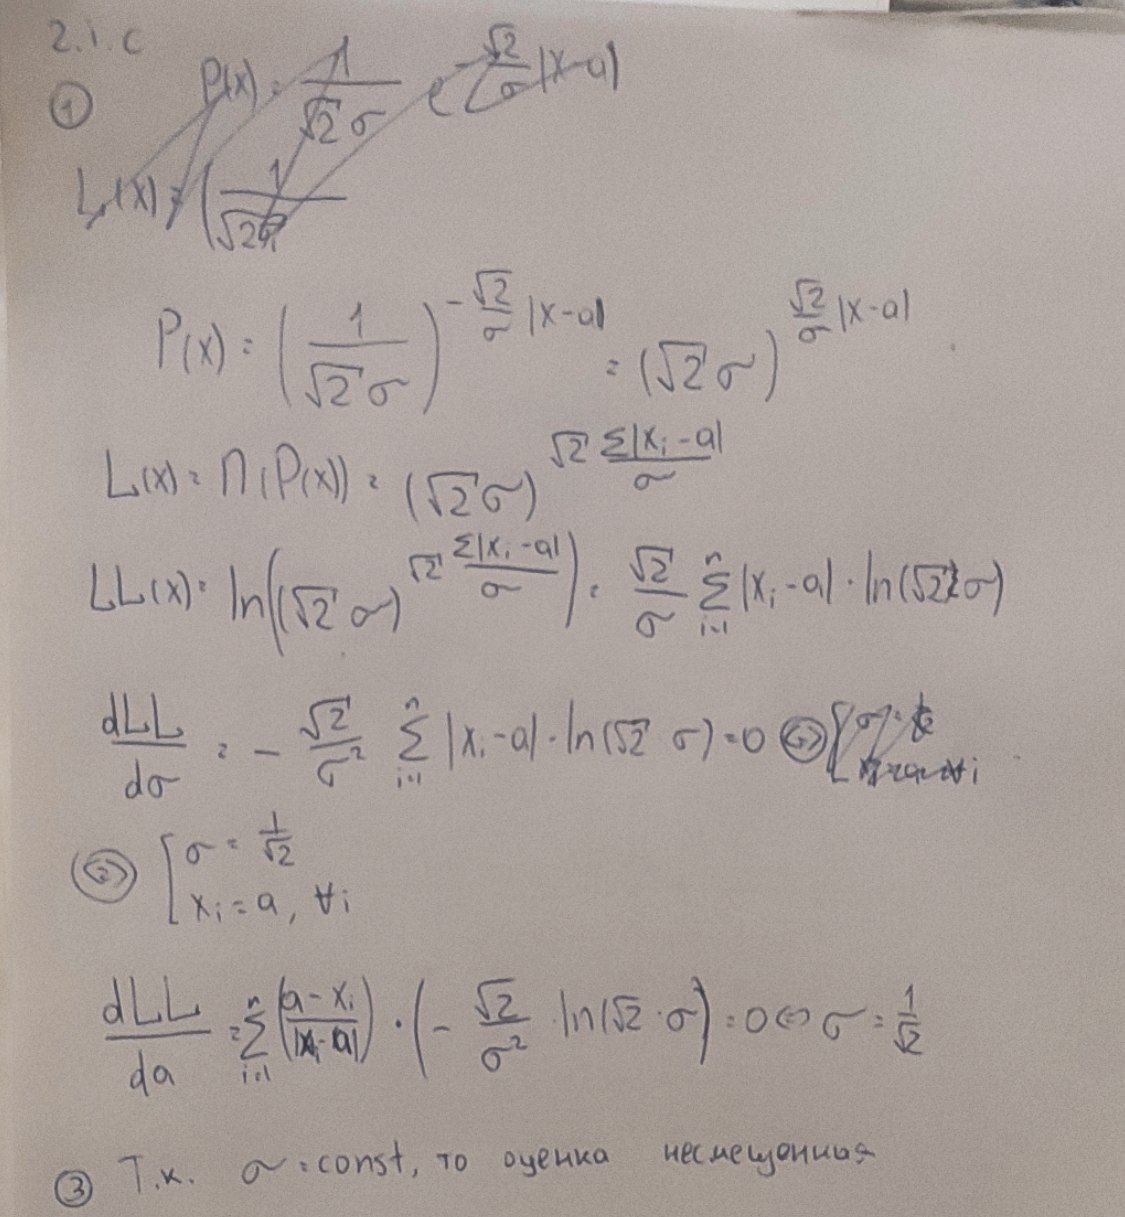 2.1.c
① P(x) = 1/(√2 σ) e^(-√2/σ |x-a|)
L(x) = (1/(√2σ
P(x) = (1/(√2 σ))^(-√2/σ |x-a|) = (√2 σ)^(√2/σ |x-a|)
L(x) = Π(P(x)) = (√2 σ)^(√2 Σ|x_i-a|/σ)
LL(x) = ln((√2 σ)^(√2 Σ|x_i-a|/σ)) = √2/σ Σ_{i=1}^{n} |x_i-a| · ln(√2 σ)
dLL/dσ = - √2/σ² Σ_{i=1}^{n} |x_i-a| · ln(√2 σ) = 0 ⇔
⇔ [ σ = 1/√2
x_i = a, ∀i
dLL/da = Σ_{i=1}^{n} ((a-x_i)/|x_i-a|) · (- √2/σ² · ln(√2 · σ)) = 0 ⇔ σ = 1/√2
③ Т.к. σ = const, то оценка несмещенная